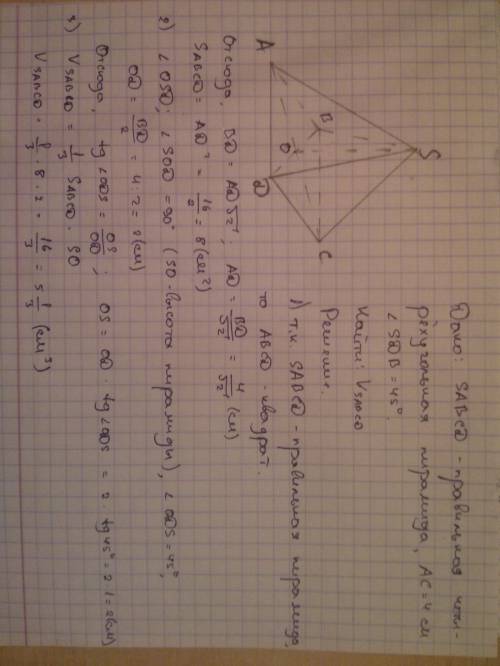 Дано: SABCD - правильная четы-
рёхугольная пирамида, AC = 4 см
∠SDB = 45°.
Найти: V SABCD
Решение.
1) т.к. SABCD - правильная пирамида,
то ABCD - квадрат.
A
B
S
O
D
C
Отсюда, BD = AD√2; AD = BD/√2 = 4/√2 (см)
SABCD = AD² = 16/2 = 8 (см²)
2) ∠OSD; ∠SOD = 90° (SO - высота пирамиды), ∠ODS = 45°,
OD = BD/2 = 4:2 = 2 (см)
Отсюда, tg∠ODS = OS/OD; OS = OD · tg∠ODS = 2 · tg45° = 2·1 = 2 (см)
3) V SABCD = 1/3 SABCD · SO
V SABCD = 1/3 · 8 · 2 = 16/3 = 5 1/3 (см³)